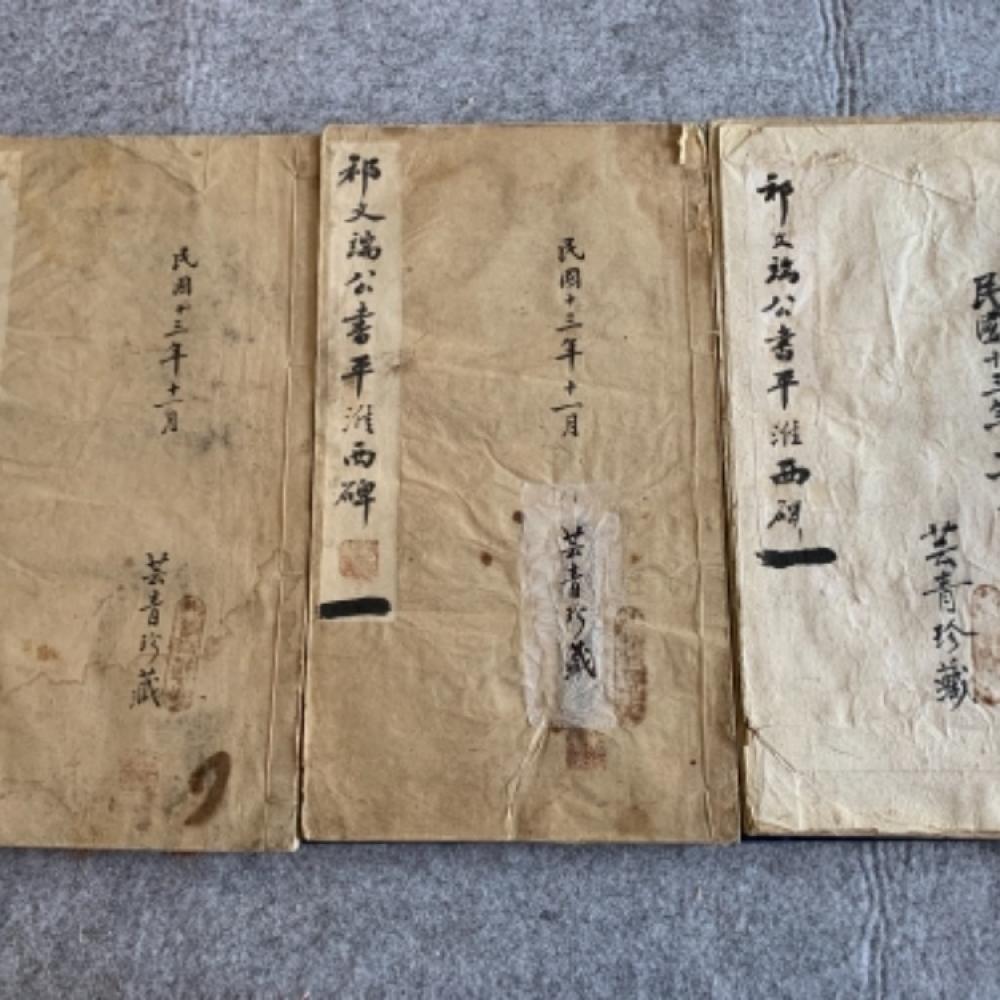 民国十三年十一月
芸青珍藏
祁文端公書平淮西碑
民国十三年十一月
芸青珍藏
祁文端公書平淮西碑
民國十三年十一
芸青珍藏